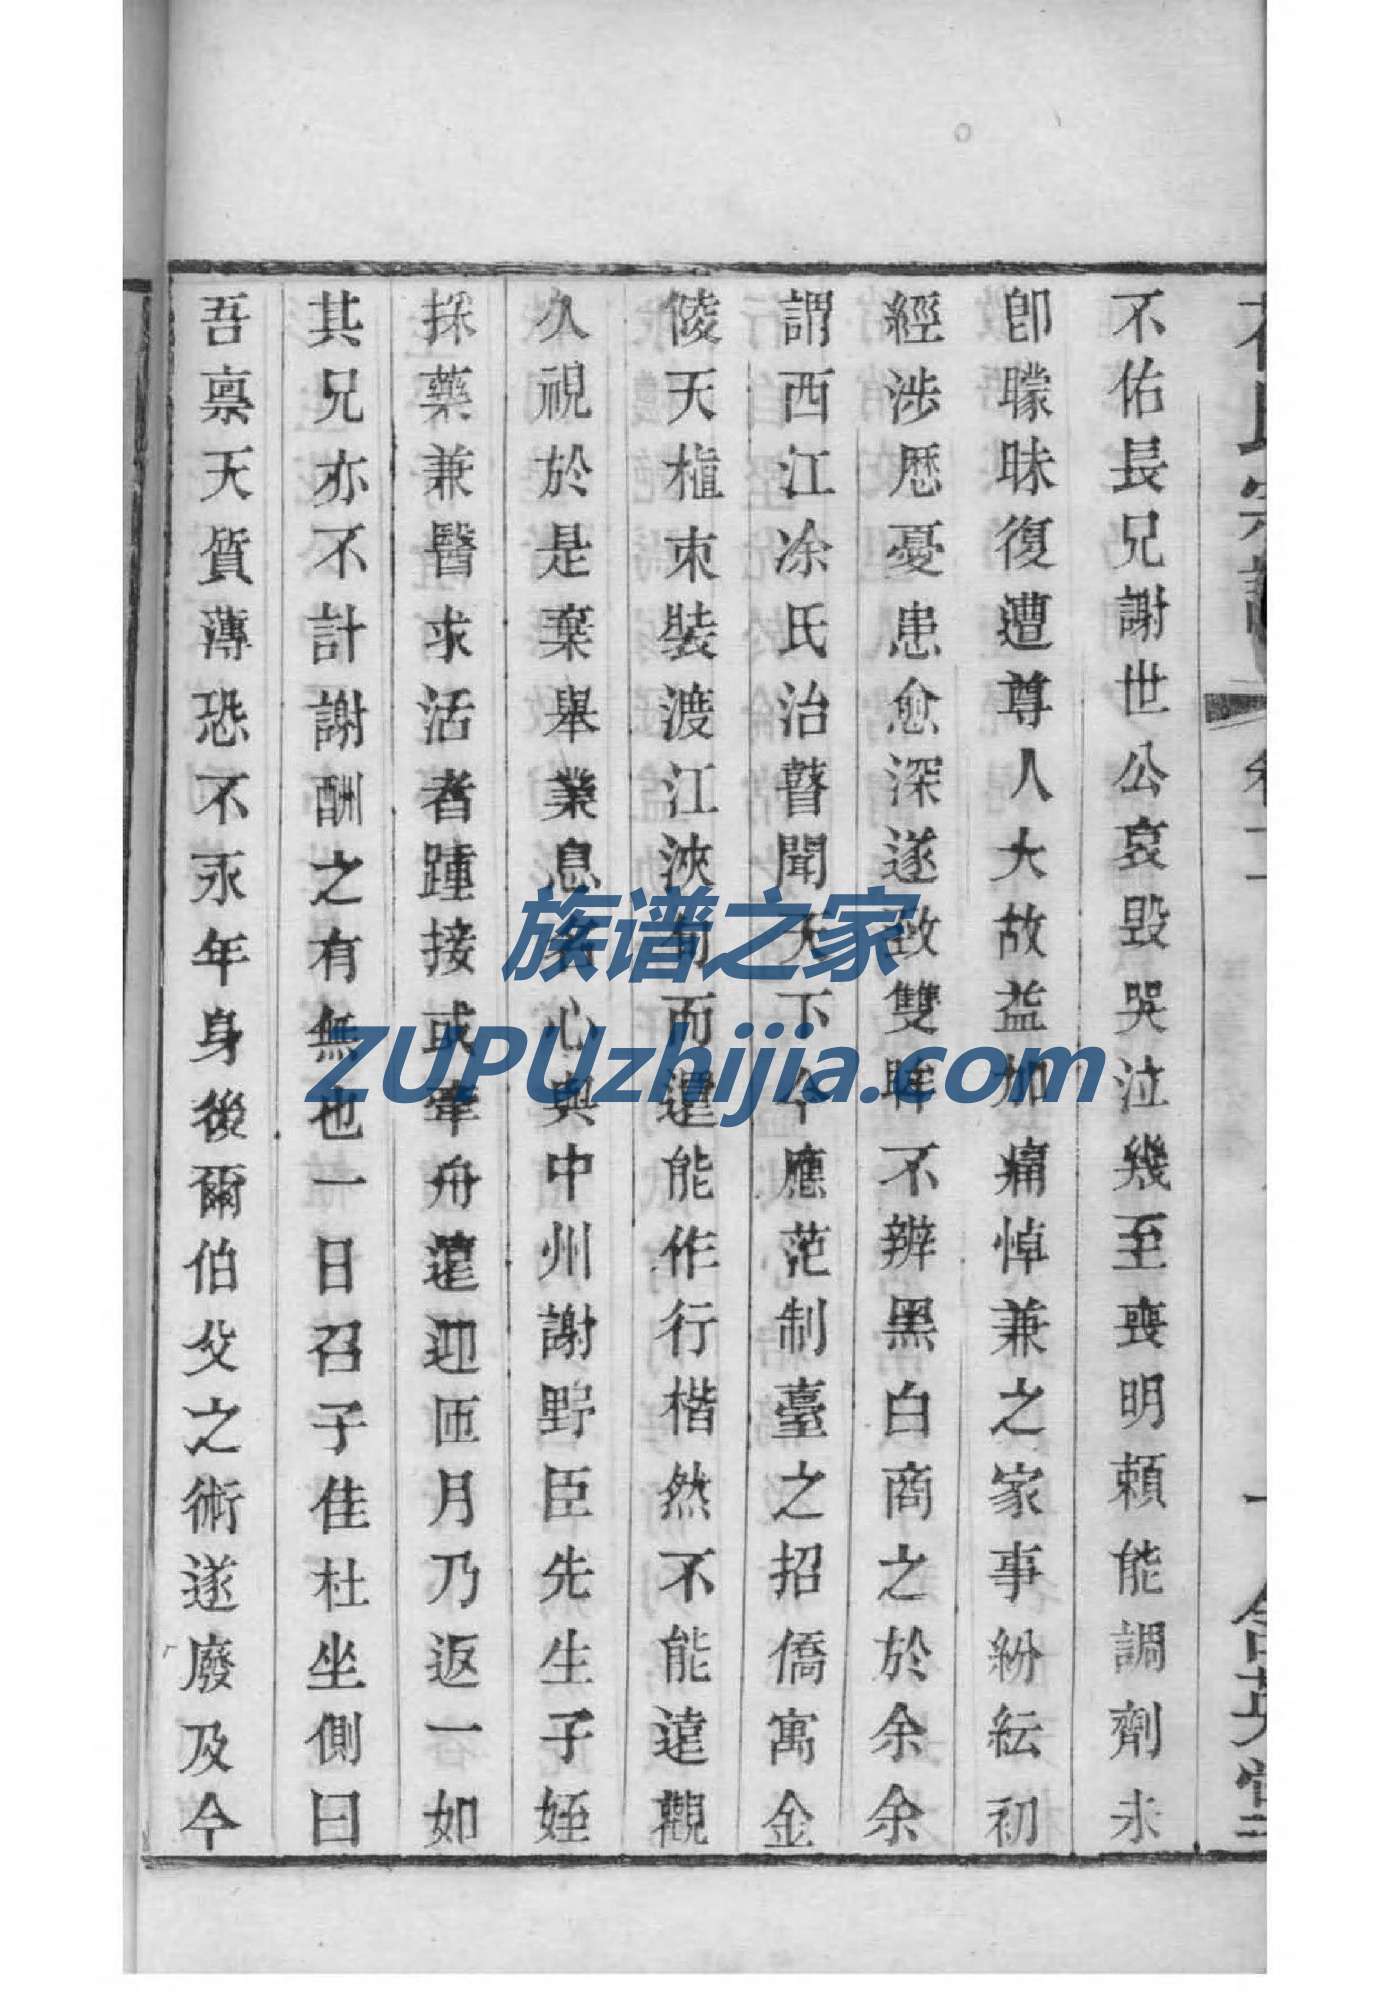 氏宗譜
不佑長兄謝世公哀毀哭泣幾至喪明頼能調劑未
卽矇昧復遭尊人大故益加痛悼兼之家事紛紜初
經涉歷憂患愈深遂致雙眸不辨黑白商之於余余
謂西江凃氏治瞽聞天下今應范制臺之招僑寓金
陵天櫃束裝渡江浹旬而還能作行楷然不能遠觀
久視於是棄舉業息名心與中州謝野臣先生子姪
採藥兼醫求活者踵接或牽舟遠迎匝月乃返一如
其兄亦不計謝酬之有無也一日召子佳杜坐側曰
吾禀天質薄恐不永年身後爾伯父之術遂廢及今
族谱之家
ZUPUzhijia.com